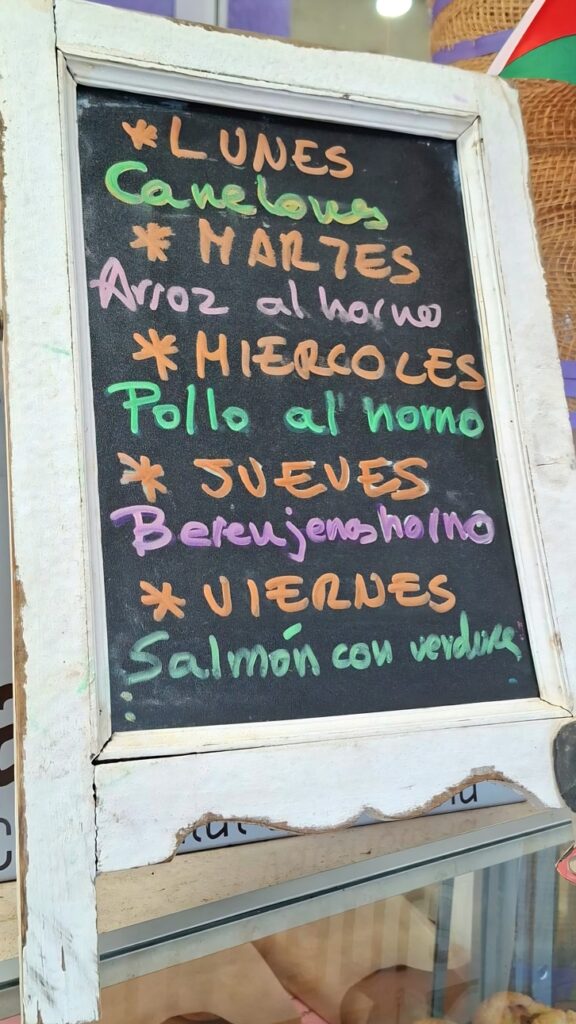 * LUNES
Canelones
* MARTES
Arroz al horno
* MIERCOLES
Pollo al horno
* JUEVES
Berenjenas horno
* VIERNES
Salmón con verdura